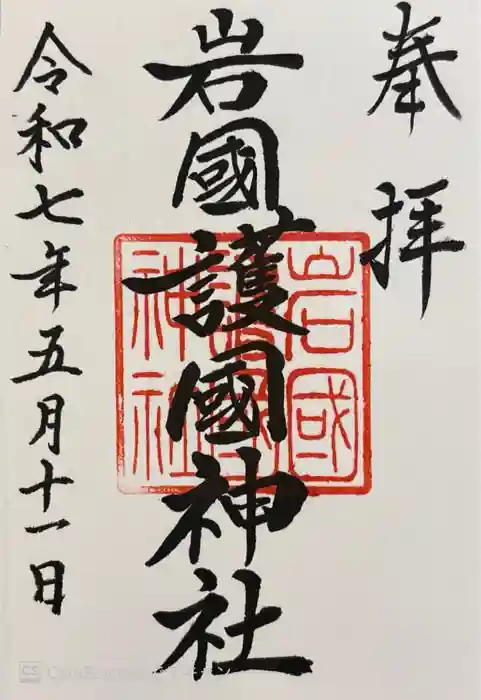 奉拝
岩國護國神社
岩國護國神社
令和七年五月十一日
CS